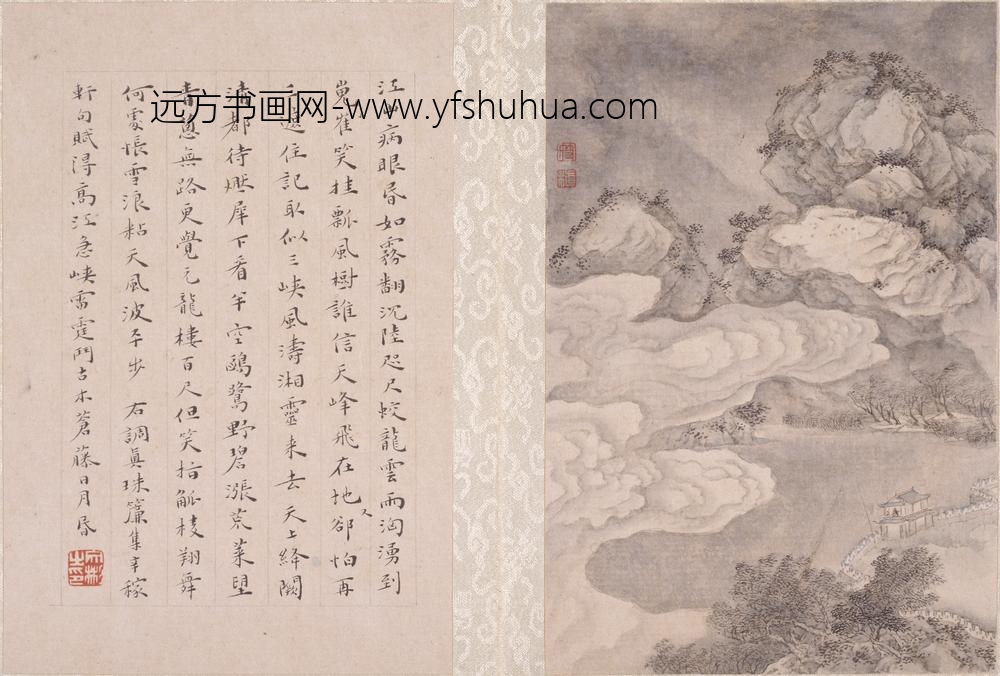 远方书画网-www.yfshuhua.com
江山病眼昏如霧翻沉陸咫尺蛟龍雲雨洶湧到
嵬崔笑挂瓢風樹誰信天峰飛在地卻又怕再
邊住記取似三峽風濤湘靈來去天上絳闕
清都待燃犀下看半空鷗鷺野碧漲荒萊望
青蔥無路更覺元龍樓百尺但笑指觚棱翔舞
何處悵雪浪粘天風波平步 右調真珠簾集辛稼
軒句賦得高江急峽雷霆鬥古木蒼藤日月昏